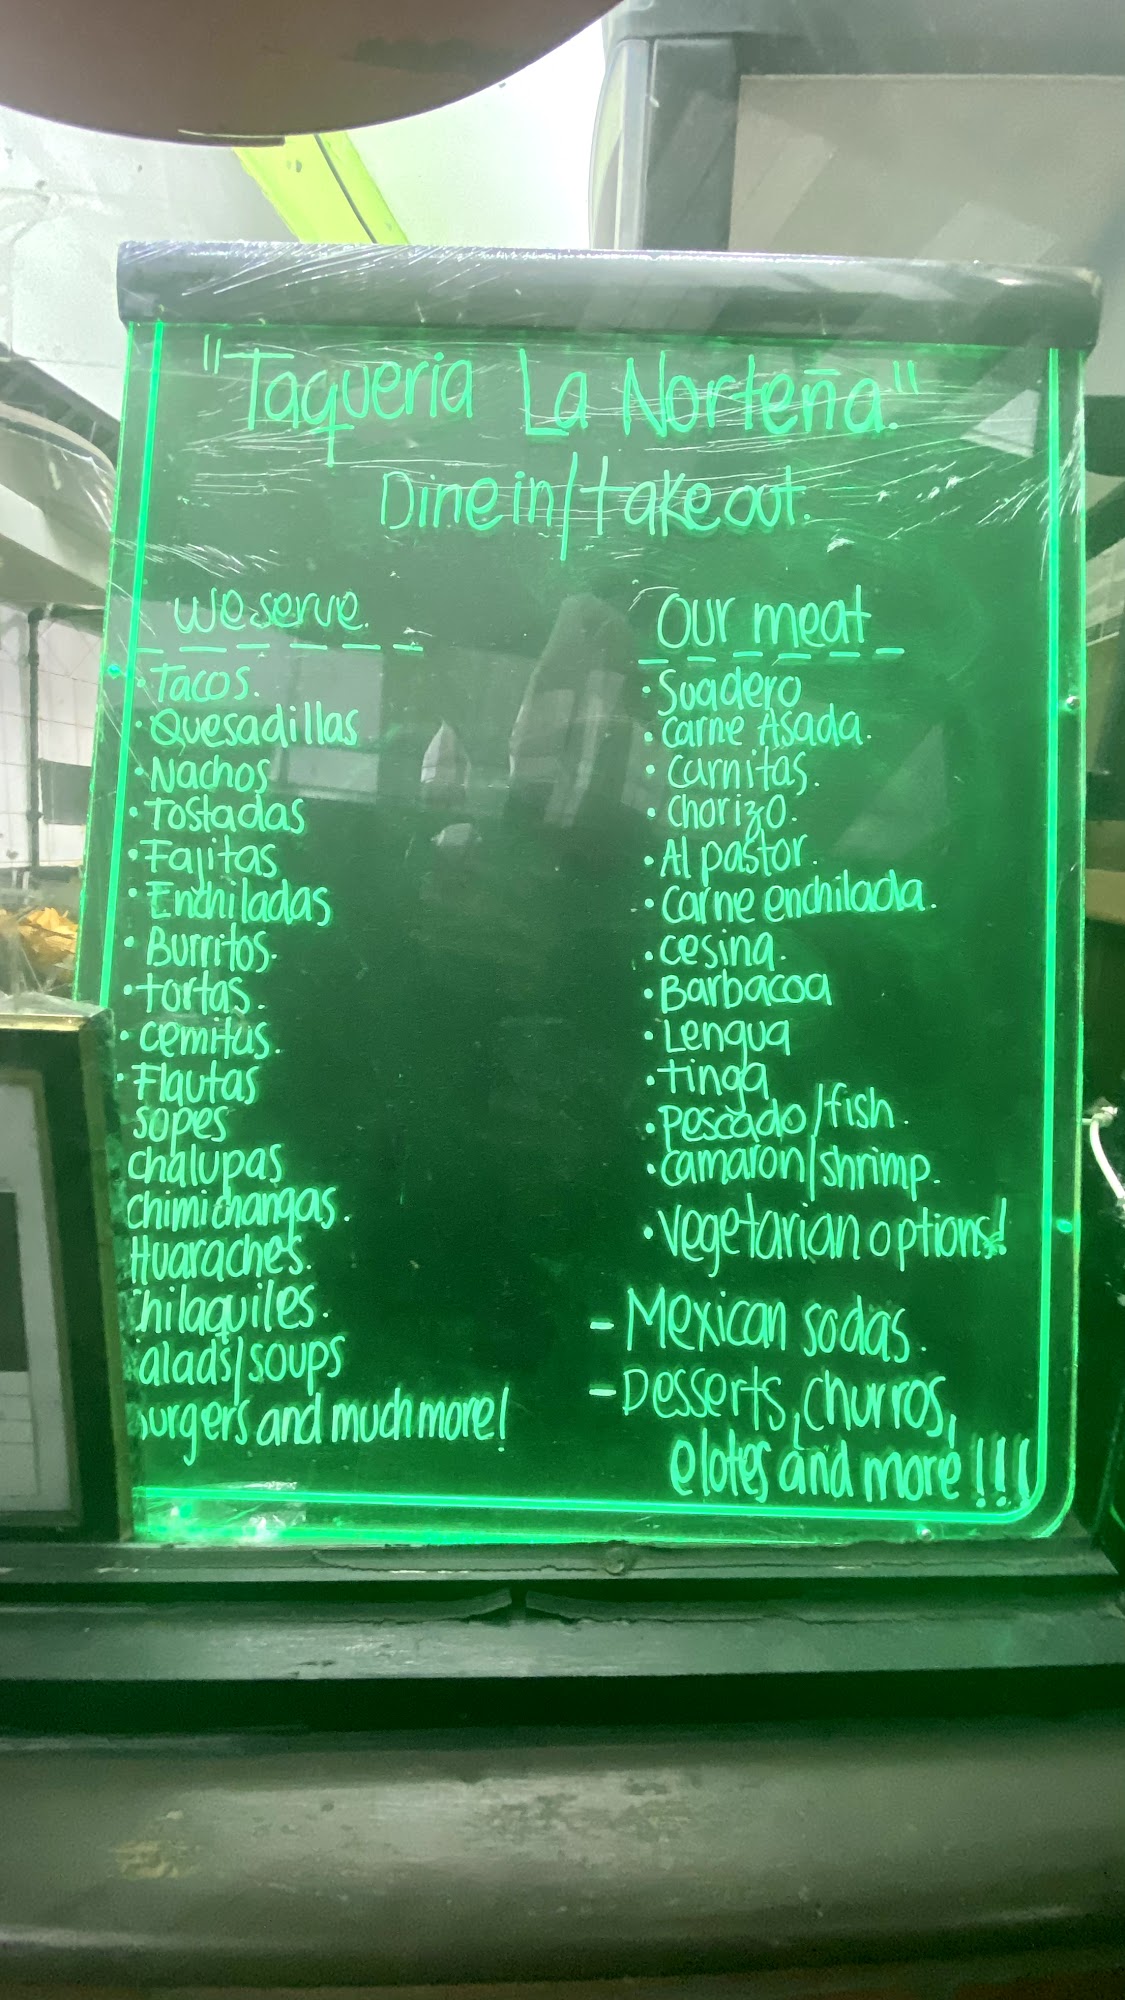 "Taqueria La Norteña."
Dine in/take out.
We serve.
• Tacos.
• Quesadillas
• Nachos
• Tostadas
• Fajitas
• Enchiladas
• Burritos.
• tortas.
• cemitas.
• Flautas
sopes
chalupas
chimichangas.
Huaraches.
hilaquiles.
alads/soups
urgers and much more!
Our meat
• Suadero
• Carne Asada.
• Carnitas.
• Chorizo.
• Al pastor.
• Carne enchilada.
• cesina.
• Barbacoa
• Lengua
• tinga
• pescado/fish.
• camaron/shrimp.
• vegetarian options!
- Mexican sodas.
- Desserts, churros,
elotes and more!!!